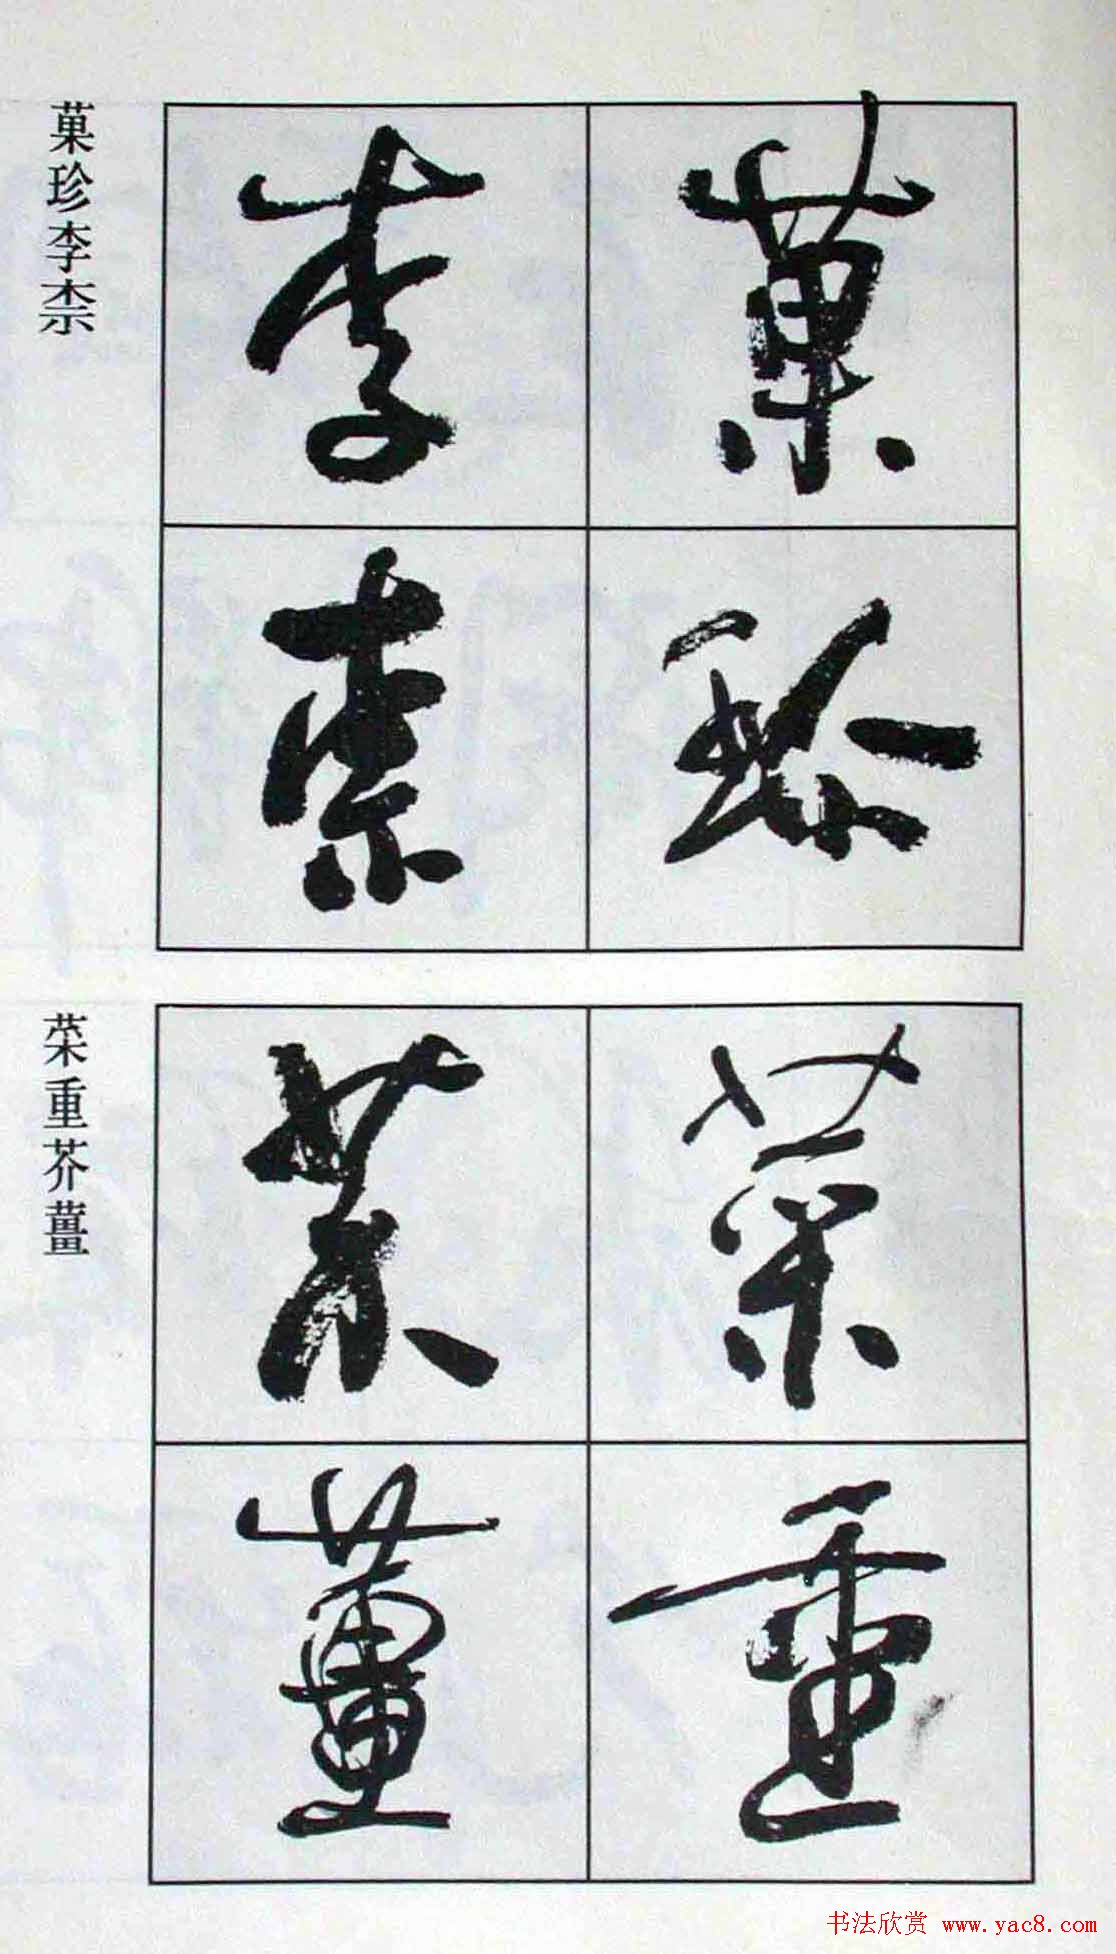 菓珍
李柰
菓珍李柰
菜重
芥薑
菜重芥薑
书法欣赏 www.yac8.com